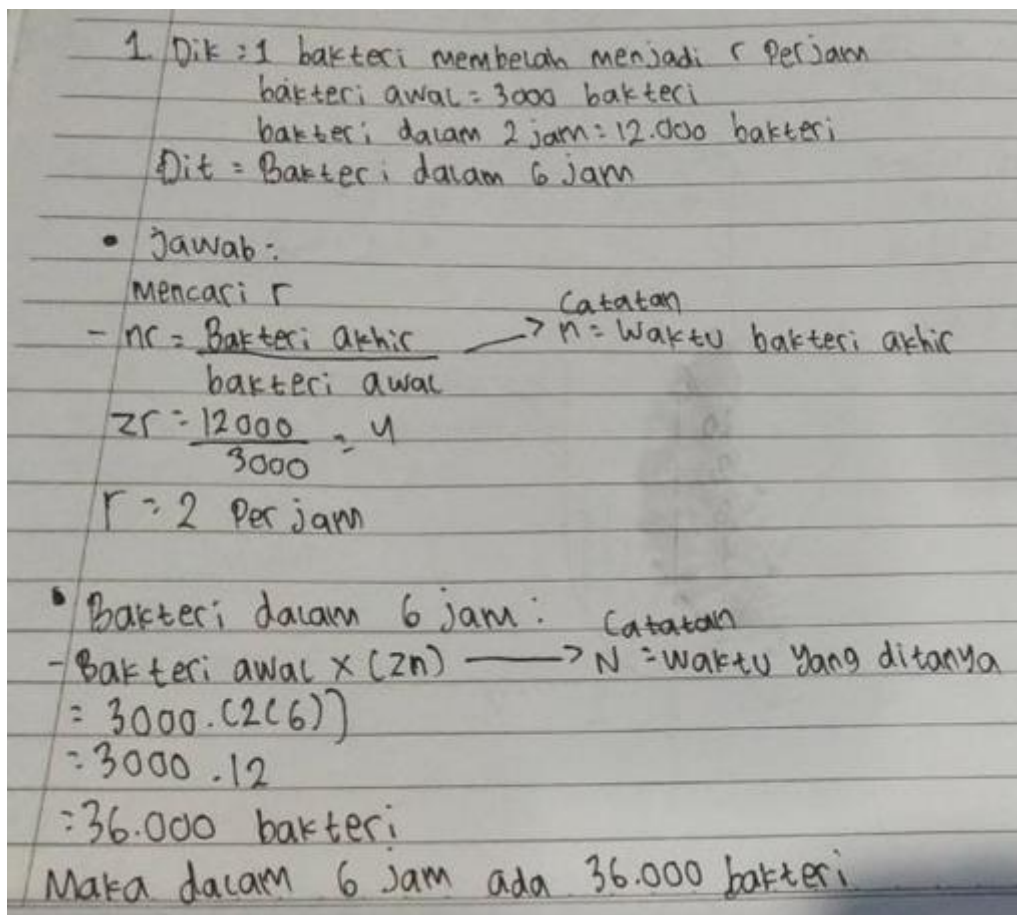 1. Dik : 1 bakteri membelah menjadi r Perjam
bakteri awal = 3000 bakteri
bakteri dalam 2 jam = 12.000 bakteri
Dit = Bakteri dalam 6 jam
• Jawab :
Mencari r
Catatan
- nr = Bakteri akhir / bakteri awal → n = Waktu bakteri akhir
2r = 12000 / 3000 = 4
r = 2 Per jam
• Bakteri dalam 6 jam :
Catatan
- Bakteri awal x (2n) → N = waktu yang ditanya
= 3000 . (2(6))
= 3000 . 12
= 36.000 bakteri
Maka dalam 6 Jam ada 36.000 bakteri